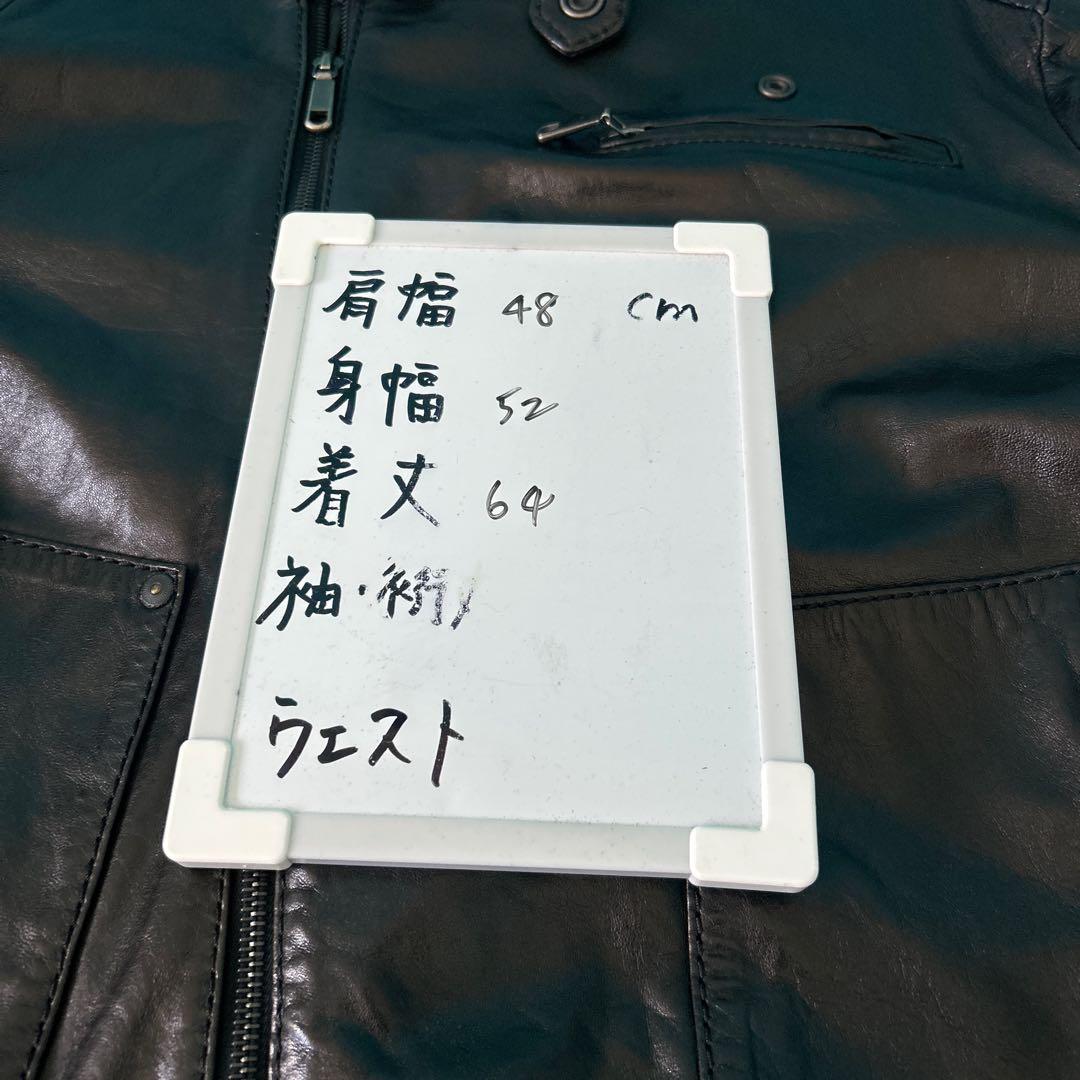 肩幅 48 cm
身幅 52
着丈 64
袖・裄
ウエスト